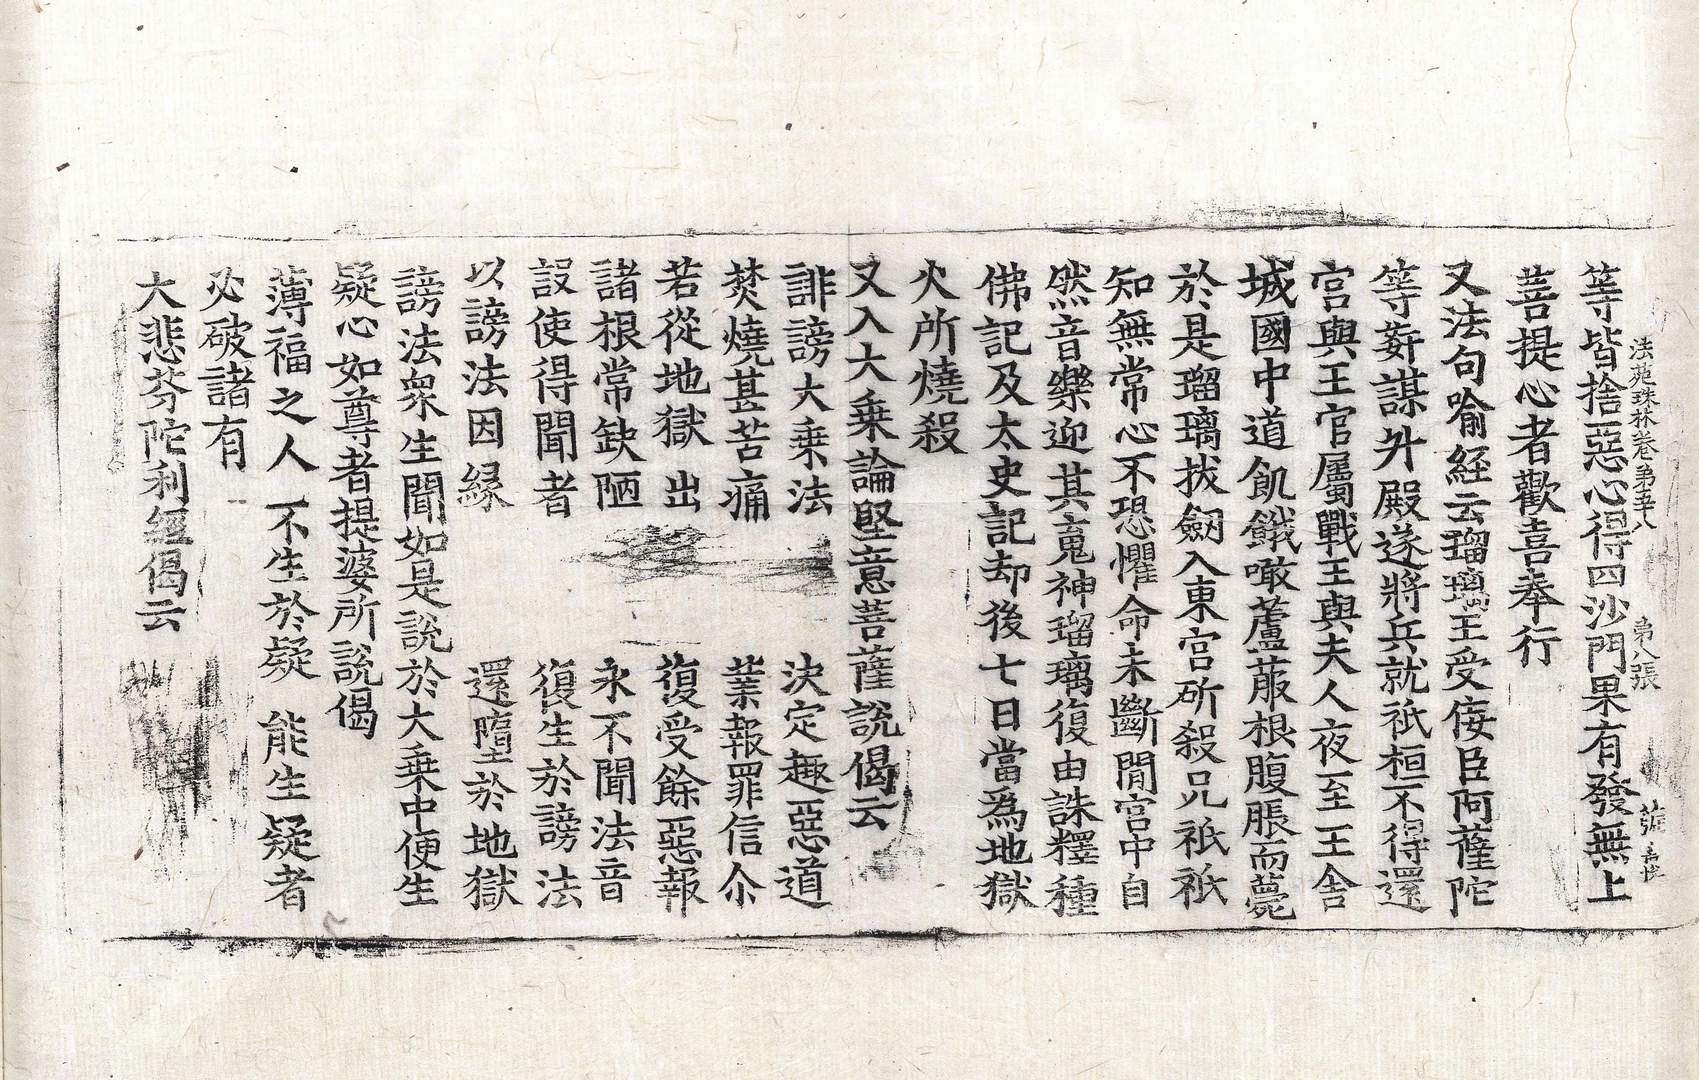 法苑珠林卷第五十八 第八張
等皆捨惡心得四沙門果有發無上
菩提心者歡喜奉行
又法句喻経云瑠璃王受佞臣阿薩陀
等䛒謀升殿遂將兵就祇桓不得還
宮與王官屬戰王與夫人夜至王舍
城國中道飢餓噉蘆菔根腹脹而薨
於是瑠璃拔劒入東宮斫殺兄祇祇
知無常心不恐懼命未斷閒宮中自
然音樂迎其䰟神瑠璃復由誅釋種
佛記及太史記却後七日當爲地獄
火所燒殺
又入大乗論堅意菩薩說偈云
誹謗大乗法 決定趣惡道
焚燒甚苦痛 業報罪信尒
若從地獄出 復受餘惡報
諸根常缺陋 永不聞法音
設使得聞者 復生於謗法
以謗法因緣 還墮於地獄
謗法衆生聞如是說於大乗中便生
疑心如尊者提婆所說偈
薄福之人 不生於疑 能生疑者
必破諸有
大悲芬陀利經偈云